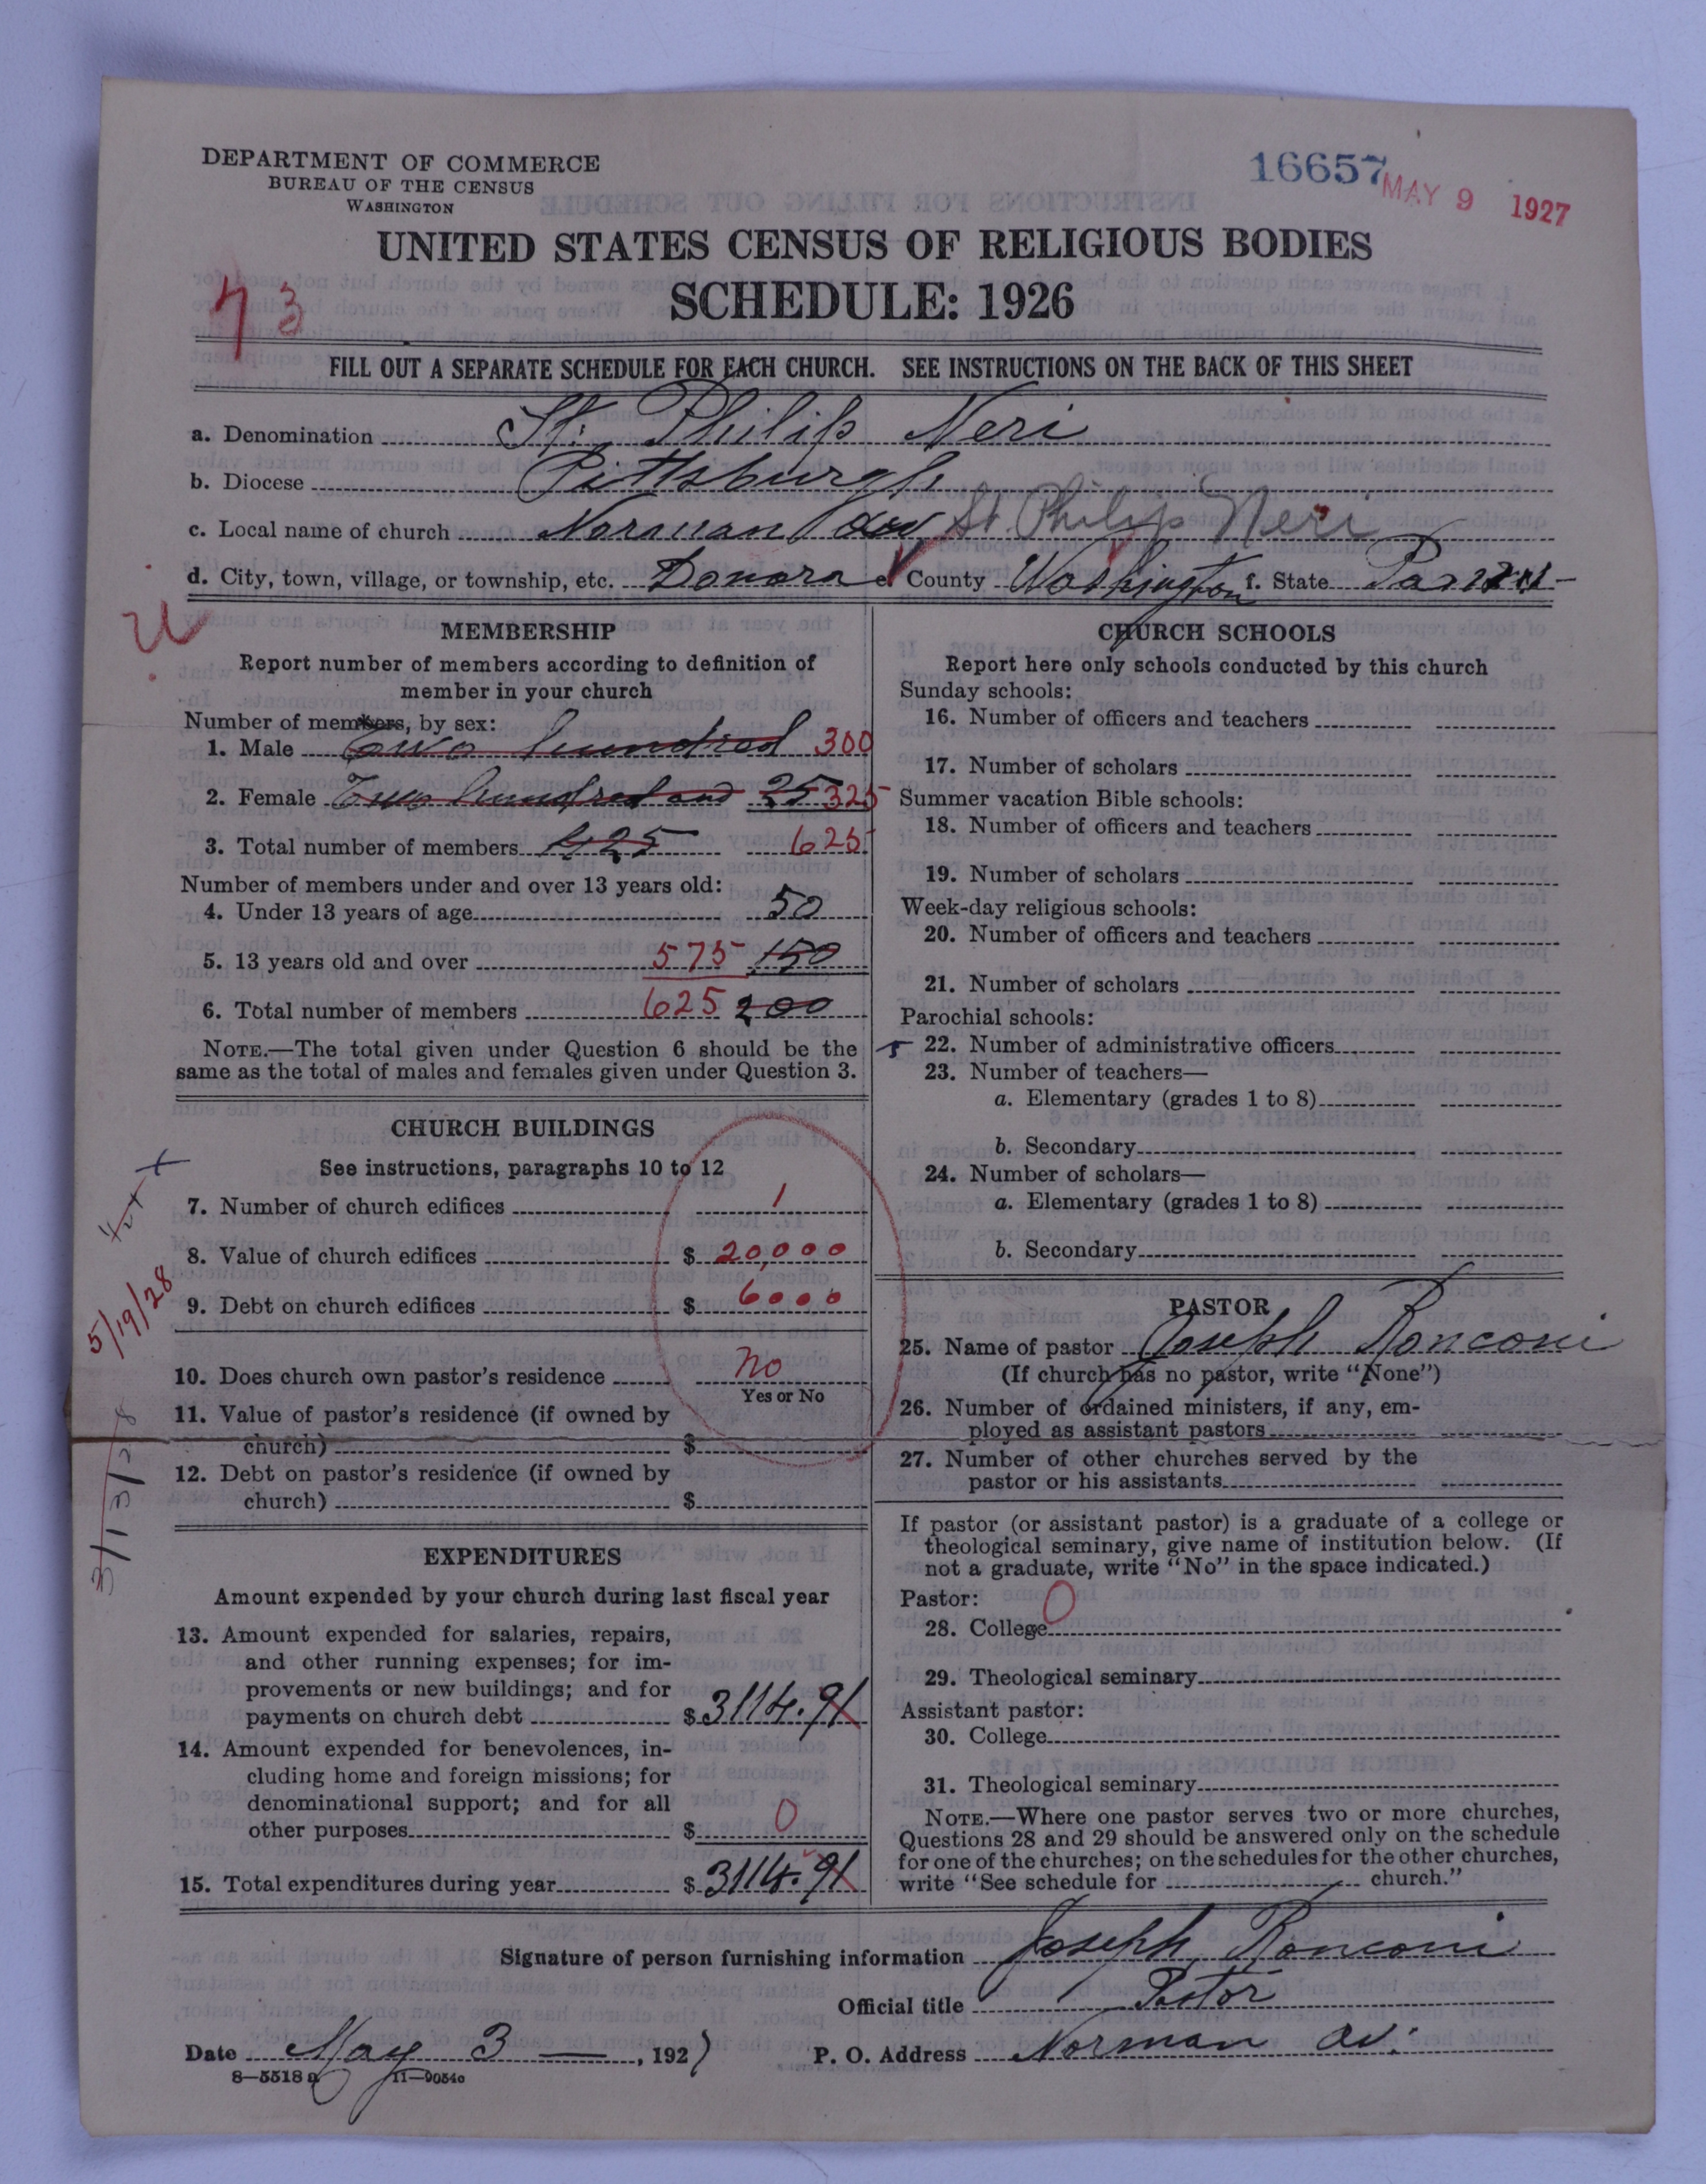 DEPARTMENT OF COMMERCE
BUREAU OF THE CENSUS
WASHINGTON
16657
MAY 9 1927
UNITED STATES CENSUS OF RELIGIOUS BODIES
SCHEDULE: 1926
73
FILL OUT A SEPARATE SCHEDULE FOR EACH CHURCH. SEE INSTRUCTIONS ON THE BACK OF THIS SHEET
a. Denomination St. Philip Neri
b. Diocese Pittsburgh
c. Local name of church Norman St. Philip Neri
d. City, town, village, or township, etc. Donora e. County Washington f. State
U
MEMBERSHIP
Report number of members according to definition of
member in your church
Number of members, by sex:
1. Male Two hundred 300
2. Female Two hundred and 25 325
3. Total number of members 425 625
Number of members under and over 13 years old:
4. Under 13 years of age 50
5. 13 years old and over 575 150
6. Total number of members 625 200
NOTE.—The total given under Question 6 should be the
same as the total of males and females given under Question 3.
CHURCH BUILDINGS
See instructions, paragraphs 10 to 12
7. Number of church edifices 1
8. Value of church edifices $ 20,000
9. Debt on church edifices $ 6000
5/19/28
10. Does church own pastor's residence No
Yes or No
11. Value of pastor's residence (if owned by
church) $
12. Debt on pastor's residence (if owned by
church) $
3/13/28
EXPENDITURES
Amount expended by your church during last fiscal year
13. Amount expended for salaries, repairs,
and other running expenses; for im-
provements or new buildings; and for
payments on church debt $ 3114.91
14. Amount expended for benevolences, in-
cluding home and foreign missions; for
denominational support; and for all
other purposes $ 0
15. Total expenditures during year $ 3114.91
CHURCH SCHOOLS
Report here only schools conducted by this church
Sunday schools:
16. Number of officers and teachers
17. Number of scholars
Summer vacation Bible schools:
18. Number of officers and teachers
19. Number of scholars
Week-day religious schools:
20. Number of officers and teachers
21. Number of scholars
Parochial schools:
22. Number of administrative officers
23. Number of teachers—
a. Elementary (grades 1 to 8)
b. Secondary
24. Number of scholars—
a. Elementary (grades 1 to 8)
b. Secondary
PASTOR
25. Name of pastor Joseph Ronconi
(If church has no pastor, write "None")
26. Number of ordained ministers, if any, em-
ployed as assistant pastors
27. Number of other churches served by the
pastor or his assistants
If pastor (or assistant pastor) is a graduate of a college or
theological seminary, give name of institution below. (If
not a graduate, write "No" in the space indicated.)
Pastor: 0
28. College
29. Theological seminary
Assistant pastor:
30. College
31. Theological seminary
NOTE.—Where one pastor serves two or more churches,
Questions 28 and 29 should be answered only on the schedule
for one of the churches; on the schedules for the other churches,
write "See schedule for church."
Signature of person furnishing information Joseph Ronconi
Official title Pastor
Date May 3 —, 1927 P. O. Address Norman av.
8—5518 a 11—9054c